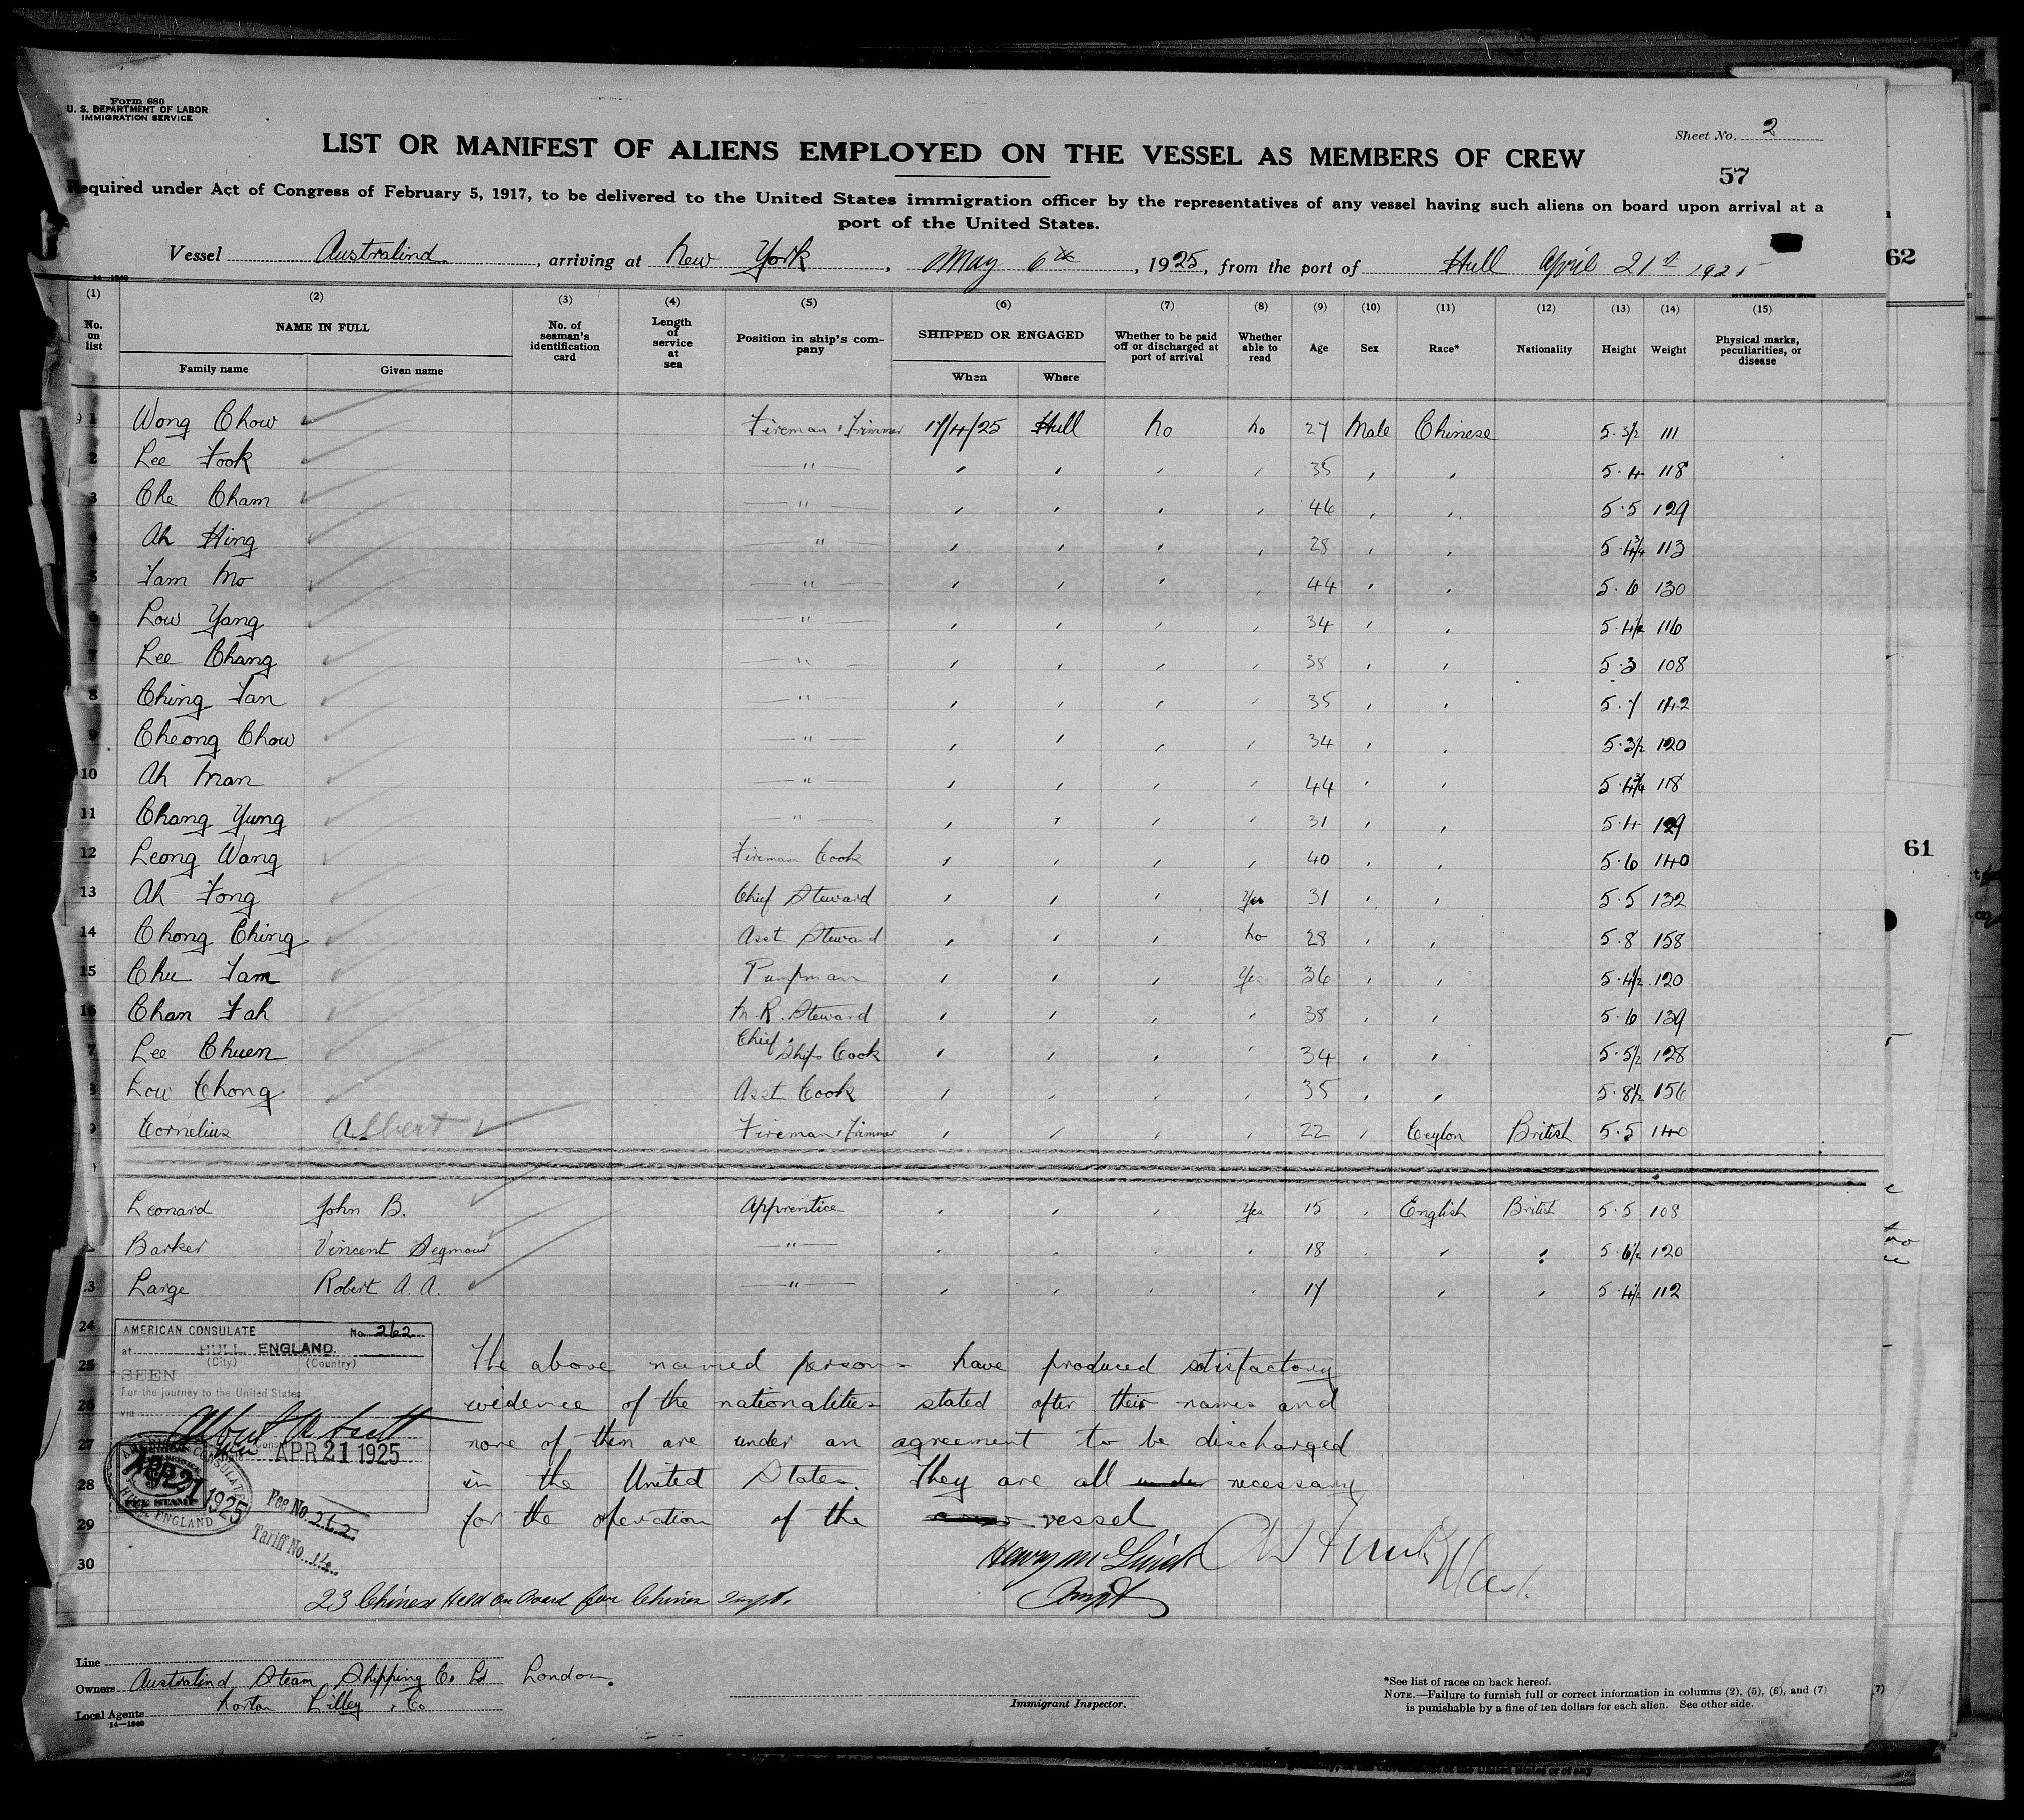 Form 680
U. S. DEPARTMENT OF LABOR
IMMIGRATION SERVICE
Sheet No. 2
LIST OR MANIFEST OF ALIENS EMPLOYED ON THE VESSEL AS MEMBERS OF CREW
57
Required under Act of Congress of February 5, 1917, to be delivered to the United States immigration officer by the representatives of any vessel having such aliens on board upon arrival at a
port of the United States.
Vessel Australind, arriving at New York, May 6th, 1925, from the port of Hull April 21st 1925
14—1240
62
(1) (2) (3) (4) (5) (6) (7) (8) (9) (10) (11) (12) (13) (14) (15)
No. on list NAME IN FULL No. of seaman's identification card Length of service at sea Position in ship's company SHIPPED OR ENGAGED Whether to be paid off or discharged at port of arrival Whether able to read Age Sex Race* Nationality Height Weight Physical marks, peculiarities, or disease
Family name Given name When Where
1 Wong Chow Fireman & Trimmer 17/4/25 Hull No No 27 Male Chinese 5.3½ 111
2 Lee Fook " " " " " 35 " " 5.4 118
3 Che Cham " " " " " 46 " " 5.5 129
4 Ah Hing " " " " " 28 " " 5.4¾ 113
5 Tam Mo " " " " " 44 " " 5.6 130
6 Low Yang " " " " " 34 " " 5.4½ 116
7 Lee Chang " " " " " 38 " " 5.3 108
8 Ching Tan " " " " " 35 " " 5.7 142
9 Cheong Chow " " " " " 34 " " 5.3½ 120
10 Ah Man " " " " " 44 " " 5.4¾ 118
11 Chang Yung " " " " " 31 " " 5.4 129
12 Leong Wang Fireman Cook " " " " 40 " " 5.6 140
13 Ah Fong Chief Steward " " " Yes 31 " " 5.5 132
14 Chong Ching Asst Steward " " " No 28 " " 5.8 158
15 Chu Tam Pumpman " " " Yes 36 " " 5.4½ 120
16 Chan Fah M.R. Steward " " " " 38 " " 5.6 139
7 Lee Chuen Chief Ships Cook " " " " 34 " " 5.5½ 128
8 Low Chong Asst Cook " " " " 35 " " 5.8½ 156
Cornelius Albert Fireman & Trimmer " " " " 22 " Ceylon British 5.5 140
Leonard John B. Apprentice " " " Yes 15 " English British 5.5 108
Barker Vincent Segmour " " " " " 18 " " " 5.6½ 120
3 Large Robert A. A. " " " " " 17 " " 5.4½ 112
24
25
26
27
28
29
30
61
AMERICAN CONSULATE No. 262
at HULL, ENGLAND.
(City) (Country)
SEEN
For the journey to the United States
via
APR 21 1925
AMERICAN CONSULATE
APR 21 1925
FEE STAMP
HULL ENGLAND
Fee No. 262.
Tariff No. 14.
The above named persons have produced satisfactory
evidence of the nationalities stated after their names and
none of them are under an agreement to be discharged
in the United States. They are all under necessary
for the operation of the vessel
23 Chinese Held on board for Chinese Inspt.
Line
Owners Australind Steam Shipping Co. Ld London.
Local Agents Norton Lilley & Co
14—1240
Immigrant Inspector.
*See list of races on back hereof.
NOTE.—Failure to furnish full or correct information in columns (2), (5), (6), and (7)
is punishable by a fine of ten dollars for each alien. See other side.